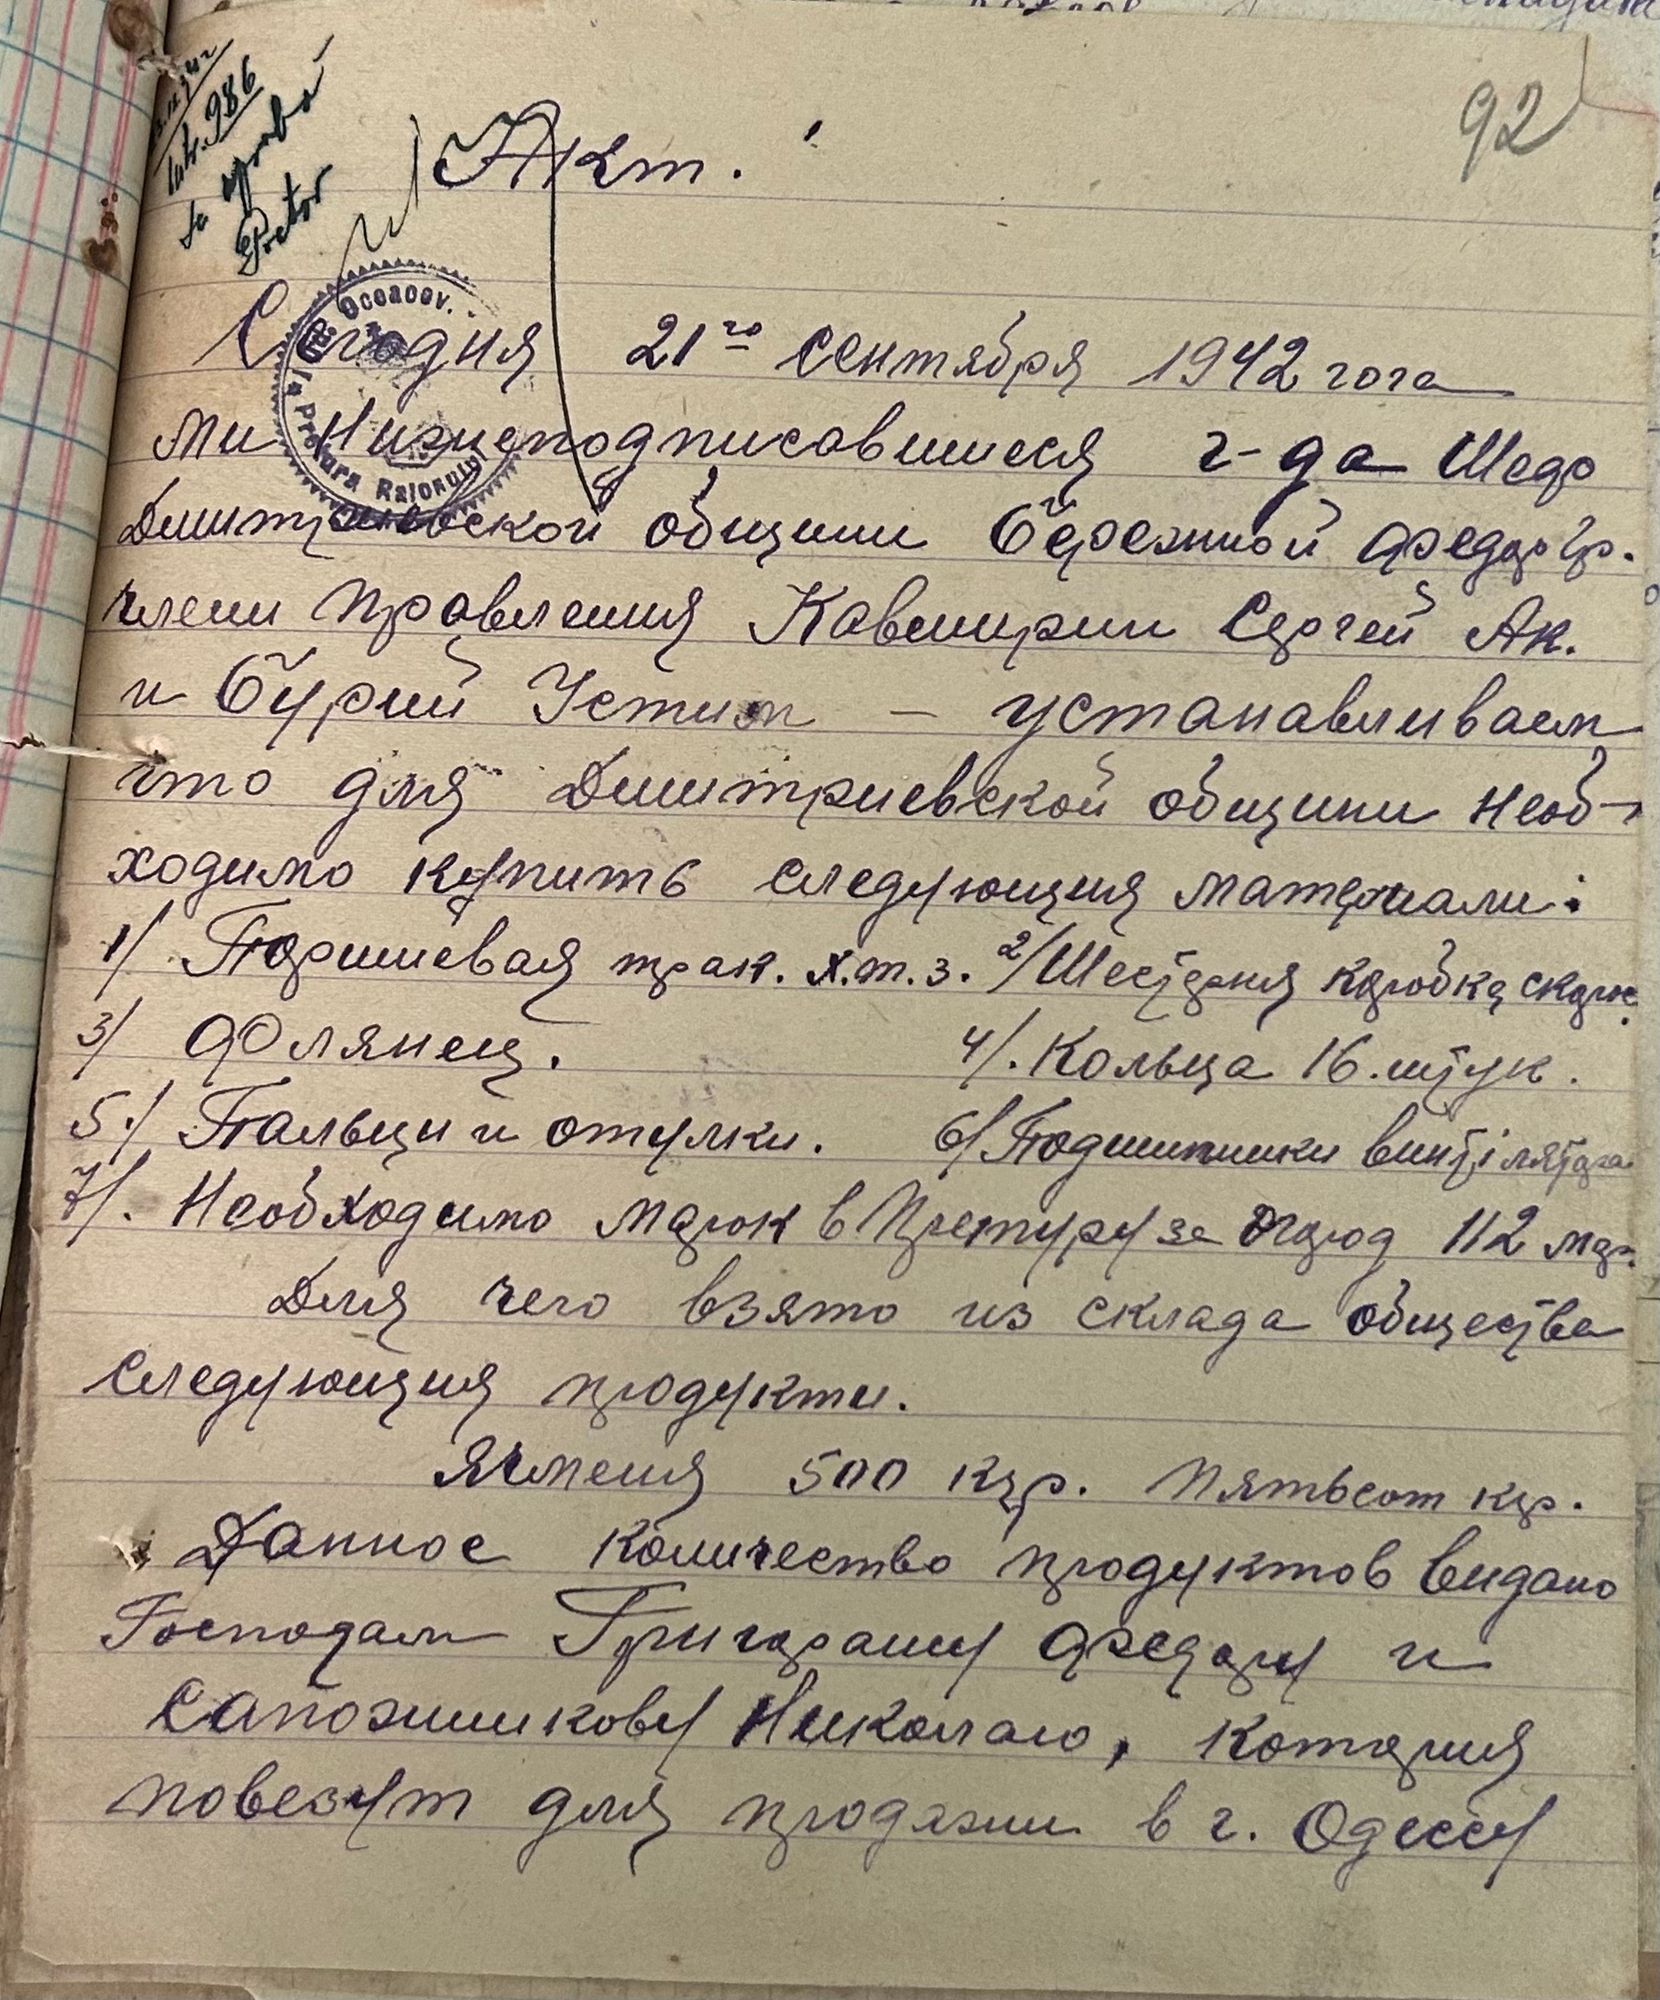 92
Intr. 986
se aproba
Pretor
Акт.
Jud. Oceacov.
Pretura Raionului
Сегодня 21го сентября 1942 года
ми Нижеподписавшиеся г-да Шеф
Дмитриевской общини Бережной Федор Гр.
члени Правления Кавширин Сергей Ак.
и Бурий Устим – устанавливаем
что для Дмитриевской общини Необ-
ходимо купить следующия материали:
1/ Поршневая трак. х.т.з. 2/ Шестерня коробка скорос.
3/ Флянец. 4/. Кольца 16. штук.
5./ Пальци и втулки. 6/ Подшипники
7/. Необходимо марок в Претуру за 112 мар.
Для чего взято из склада общества
следующия продукти.
Ячменя 500 кгр. Пятьсот кгр.
Данное количество продуктов видано
Господам Григорашу Федору и
Сапожникову Николаю, котория
повезут для продажи в г. Одессу